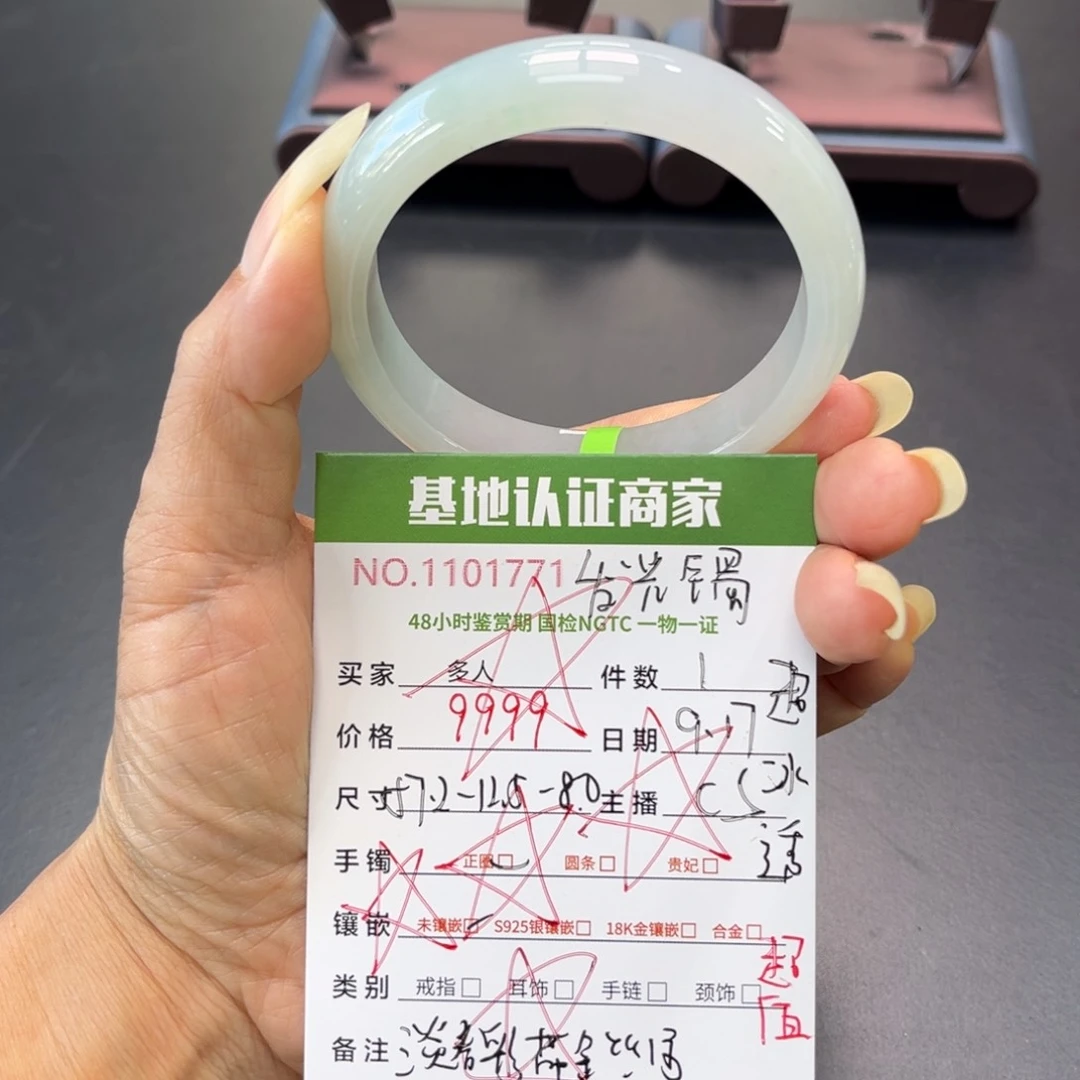 基地认证商家
NO.1101771
48小时鉴赏期 国检NGTC 一物一证
买家 多人 件数 1
价格 9999 日期 9.17
尺寸 57.2-12.5-8.0 主播
手镯 正圈 圆条 贵妃
镶嵌 未镶嵌 S925银镶嵌 18K金镶嵌 合金
类别 戒指 耳饰 手链 颈饰
备注
超
值